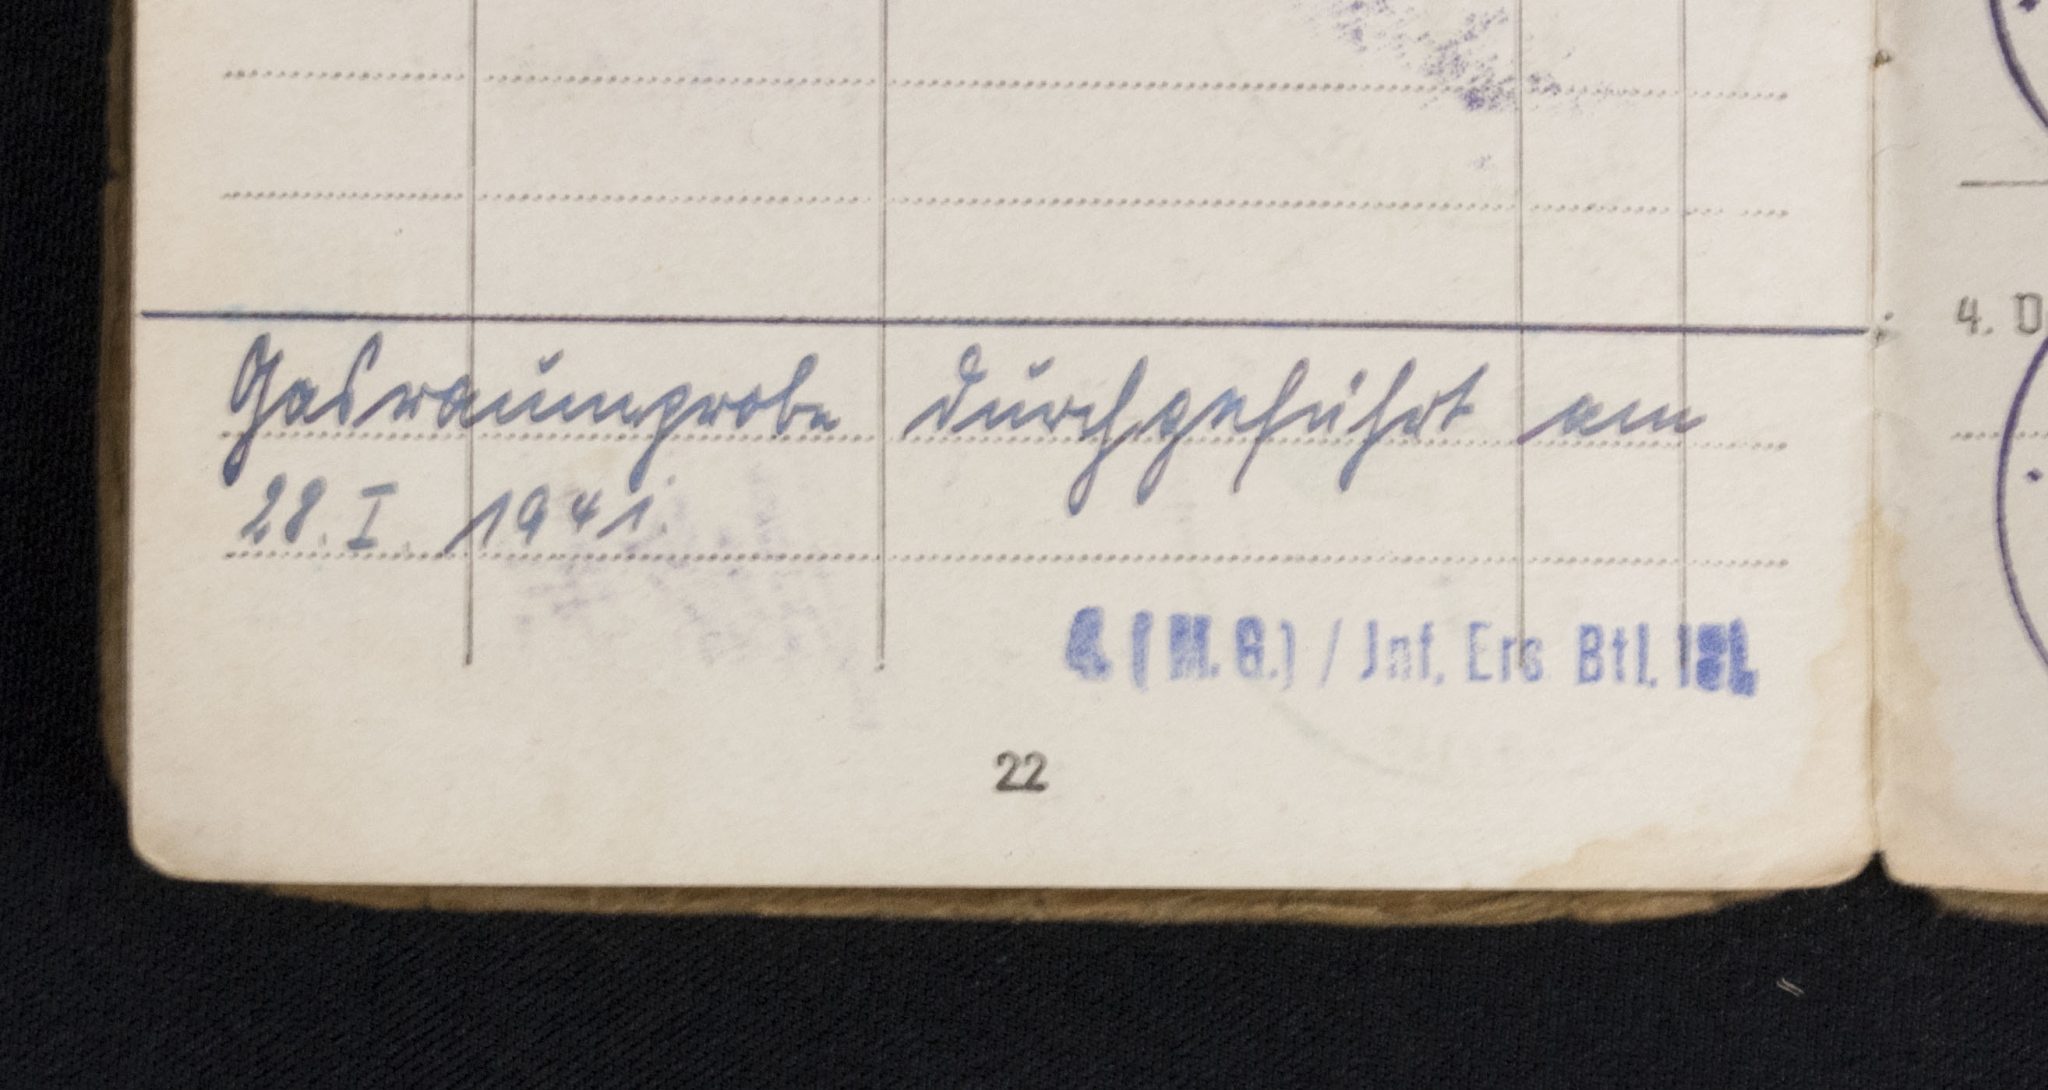 Gasraumprobe durchgeführt am
28. I. 1941.
(M. G.) / Inf. Ers Btl.
22
4. D